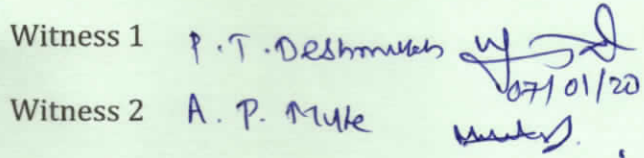 Witness 1 P. T. Deshmukh
07/01/20
Witness 2 A. P. Mule